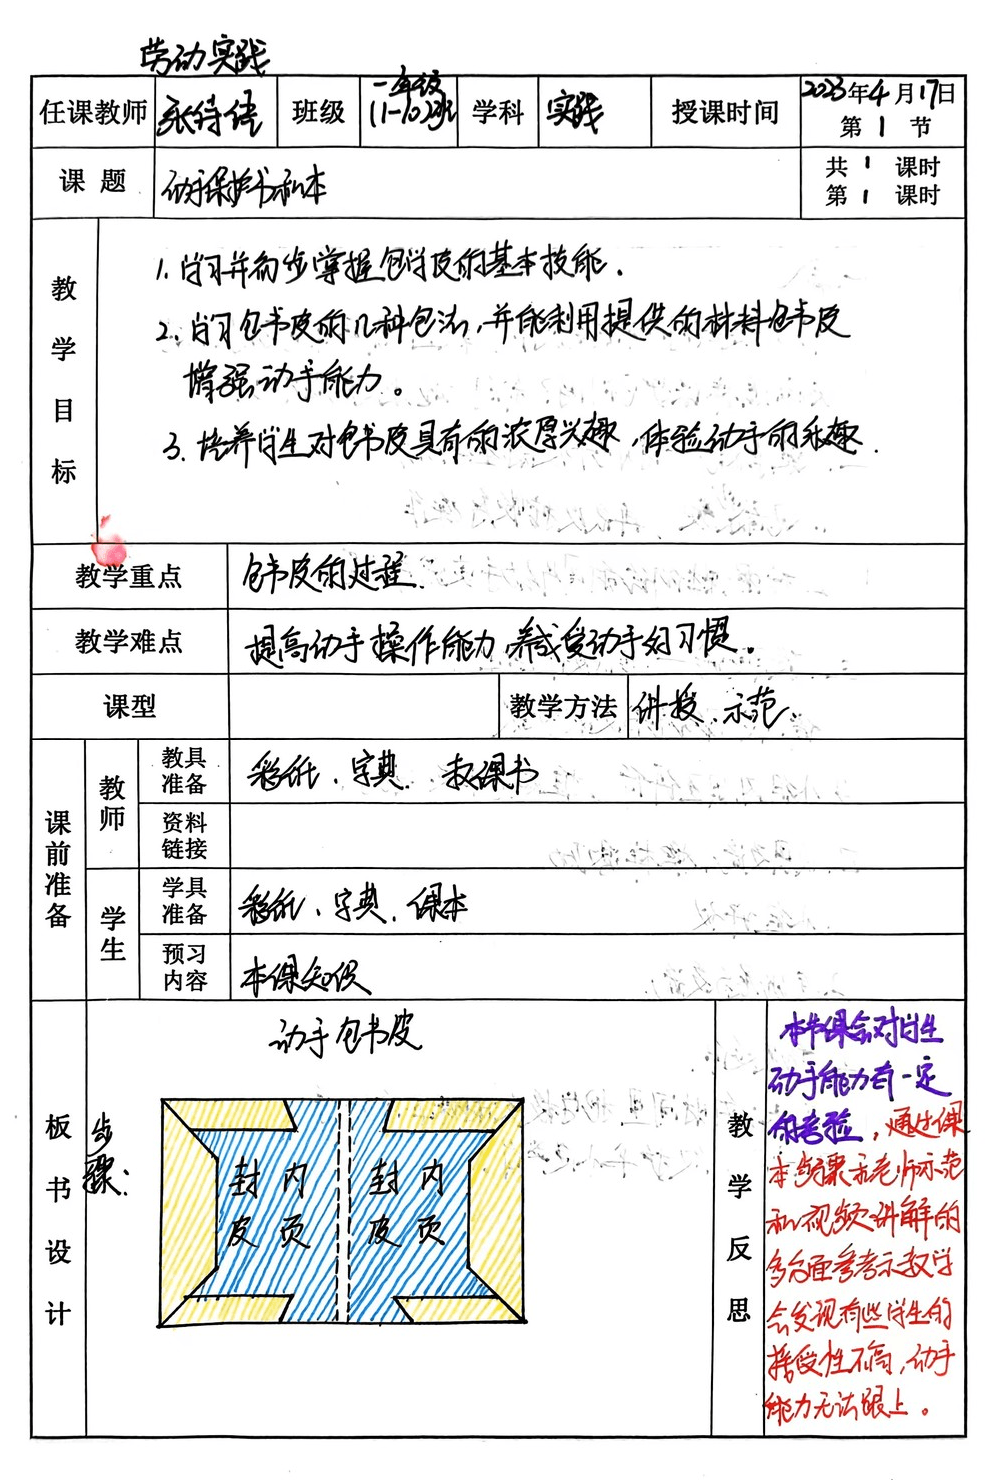 劳动实践
任课教师 班级 一年级
(1-10)班 学科 实践 授课时间 2023年4月17日
第 1 节
课题 动手保护书和本 共 1 课时
第 1 课时
教学目标
1. 学习并初步掌握包书皮的基本技能.
2. 学习包书皮的几种包法,并能利用提供的材料包书皮
增强动手能力。
3. 培养学生对包书皮具有的浓厚兴趣,体验动手的乐趣.
教学重点 包书皮的过程.
教学难点 提高动手操作能力,养成爱动手好习惯。
课型 教学方法 讲授、示范.
课前准备
教师
教具准备 彩纸、字典、教课书
资料链接
学生
学具准备 彩纸、字典、课本
预习内容 本课知识
板书设计
动手包书皮
步骤:
封皮 内页 封皮 内页
教学反思
本节课会对学生
动手能力有一定
的考验,通过课
本步骤示老师示范
和视频讲解的
多方面参考示教学
会发现有些学生的
接受性不高,动手
能力无法跟上。